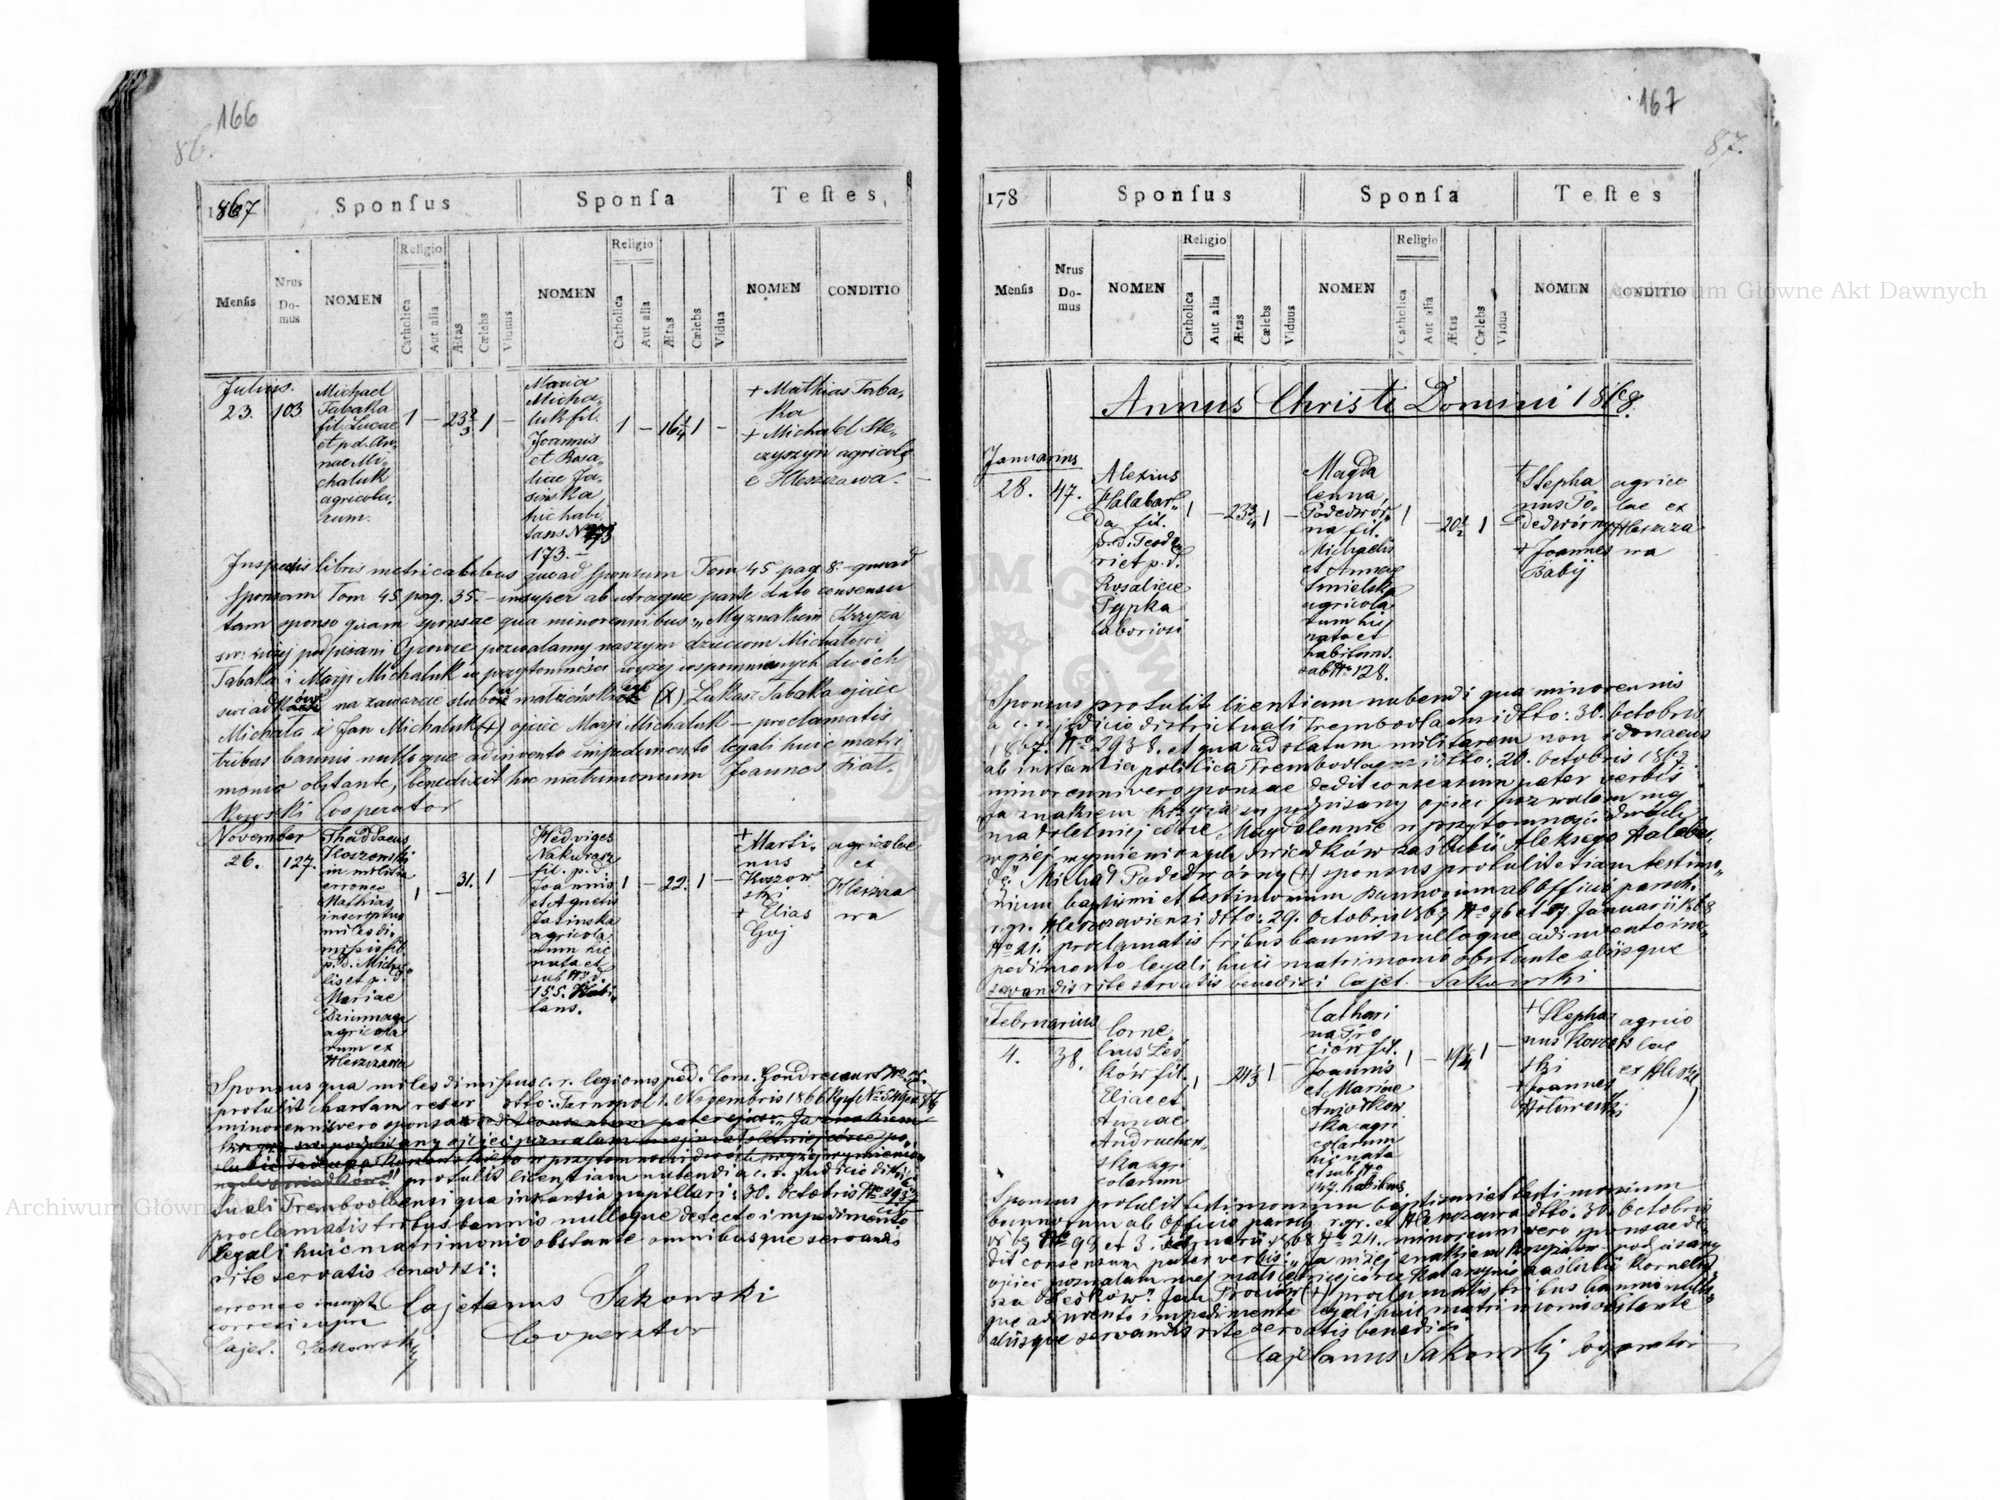 166
86.
1867
Sponſus
Sponſa
Teſtes
Menſis
Nrus Do-mus
NOMEN
Religio
Catholica
Aut alia
Ætas
Cælebs
Viduus
NOMEN
Religio
Catholica
Aut alia
Ætas
Cælebs
Vidua
NOMEN
CONDITIO
Julius.
23.
103
Michael
Tabaka
fil. Lucae
et p.d. An„
nae Mi„
chaluk
agricola„
rum.
1 – 23 2/3 1 –
Maria
Micha„
luk fil.
Joannis
et Rosa„
liae Ja„
sinska
hic habi
tans N
173. –
1 – 16 1/4 1 –
+ Mathias Taba„
ka
+ Michael Ste„
czyszyn agricolae
e Hleszczawa. –
Inspectis libris metricalibus quoad Sponsum Tom. 45 pag. 8. – quoad
Sponsam Tom 45. pag. 35. – insuper ab utraque parte dato consensu
tam sponso quam sponsae qua minorennibus: „My znakiem Krzyża
św: niżej podpisani Ojcowie pozwalamy naszym dzieciom Michałowi
Tabaka i Maryi Michaluk w przytomności wyżej wspomnianych dwóch
świadków na zawarcie ślubów małżeńskich (X) Łukasz Tabaka ojciec
Michała i Jan Michaluk (+) ojciec Maryi Michaluk – proclamatis
tribus bannis nulloque adinvento impedimento legali huic matri
monio obstante, benedixit hoc matrimonium Joannes Fiał„
kowski Cooperator
November
26.
127.
Thaddaeus
Koszowski
in militia
erronee
Mathias
inscriptus
miles di„
missus fil.
p.d. Michae„
lis et p.d.
Mariae
Dziumaga
agricola
rum ex
Hleszczawa
1 – 31. 1 –
Hedviges
Nakurasz
fil. p.d.
Joannis
et Agnetis
Jasinska
agricola
rum hic
nata et
sub No. d.
155. Habi„
tans.
1 – 22. 1 –
+ Marti„
nus
Koszow
ski
+ Elias
Goj
agricolae
ex
Hleszcza
wa
Sponsus qua miles dimissus c. r. legionis ped. Com. Gondrecourt No 55.
protulit chartam reser dtto: Tarnopol 1. Novembris 1866
minorennis vero sponsa
protulit licentiam nubendi a c. r. Judicio distri
tuali Trembowlensi qua instantia pupillari: 30. Octobris No 2937
proclamatis tribus bannis nulloque detecto impedimento
legali huic matrimonio obstante omnibusque servandis
rite servatis benedixi:
erronee inscripta
correxi
Cajet. Sakowski
Cajetanus Sakowski
Cooperator
167
87.
178
Sponſus
Sponſa
Teſtes
Menſis
Nrus Do-mus
NOMEN
Religio
Catholica
Aut alia
Ætas
Cælebs
Viduus
NOMEN
Religio
Catholica
Aut alia
Ætas
Cælebs
Vidua
NOMEN
CONDITIO
Annus Christi Domini 1868.
Januarius
28.
47.
Alexius
Halabar„
da fil.
p.d. Teodo
ri et p.d.
Rosaliae
Pypka
laboriosi
1 – 23 3/4 1 –
Magda
lenna
Podedwor„
na fil.
Michaelis
et Annae
Smielska
agricola
rum hic
nata et
habitans.
sub No 128.
1 – 20 1/2 1 –
+ Stepha
nus Po„
dedwórny
+ Joannes
Babij
agrico
lae ex
Hleszcza
wa
Sponsus protulit licentiam nubendi qua minorennis
a c. r. judicio districtuali Trembowlaensi dtto: 30. Octobris
1867. No 2938. et qua ad statum militarem non idonaeus
ab instantia politica Trembowlae dtto: 28. Octobris 1867.
minorenni vero sponsae dedit consensum pater verbis
Ja znakiem krzyża św podpisany ojciec pozwalam mej
małoletniej córce Magdalennie w przytomności dwóch
wyżej wymienionych świadków zaślubić Aleksego Halabar„
dę" Michał Podedwórny (+) sponsus protulit etiam testimo„
nium baptismi et testimonium bannorum ab Officio paroch.
r. gr. Hleszczaviensi dtto: 29. Octobris 1867 No 96 et 27 Januarii 1868
No 21. proclamatis tribus bannis nulloque adinvento im„
pedimento legali huic matrimonio obstante aliisque
servandis rite servatis benedixi Cajet. Sakowski
Februarius
4.
38.
Corne„
lius Leś„
ków fil.
Eliae et
Annae
Andruchow„
ska agri„
colarum
1 – 24 1/3 1 –
Cathari
na Pro
ciów fil.
Joannis
et Mariae
Aniołkow„
ska agri
colarum
hic nata
et sub No
147. habitans
1 – 19 1/4 1 –
+ Stepha„
nus Koszow
ski
+ Joannes
Hotowecki
agrico
lae
ex Hleszcz
Sponsus protulit testimonium baptismi et testimonium
bannorum ab Officio paroch r. gr. et Hleszczawa dtto: 30. Octobris
1867 No 99 et 3. Februarii 1868 No 24. minorenni vero sponsae de
dit consensum pater verbis: „Ja niżej znakiem krzyża podpisany
ojciec pozwalam mej małoletniej córce Katarzynie zaślubić Korneliu
sza Leśków" Jan Prociów (+) proclamatis tribus bannis nullo„
que adinvento impedimento legali huic matrimonio obstante
aliisque servandis rite servatis benedixi
Cajetanus Sakowski Cooperator
Archiwum Główne Akt Dawnych
Archiwum Główne Akt Dawnych